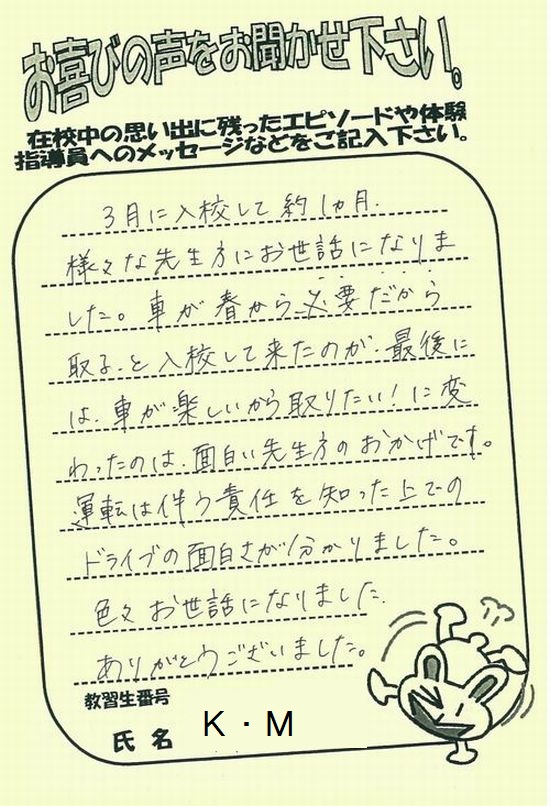 お喜びの声をお聞かせ下さい。
在校中の思い出に残ったエピソードや体験
指導員へのメッセージなどをご記入下さい。
3月に入校して約1ヵ月.
様々な先生方にお世話になりま
した。車が春から必要だから
取る、と入校して来たのが、最後に
は、車が楽しいから取りたい!に変
わったのは、面白い先生方のおかげです。
運転は伴う責任を知った上での
ドライブの面白さが分かりました。
色々お世話になりました.
ありがとうございました。
教習生番号
氏名 K・M